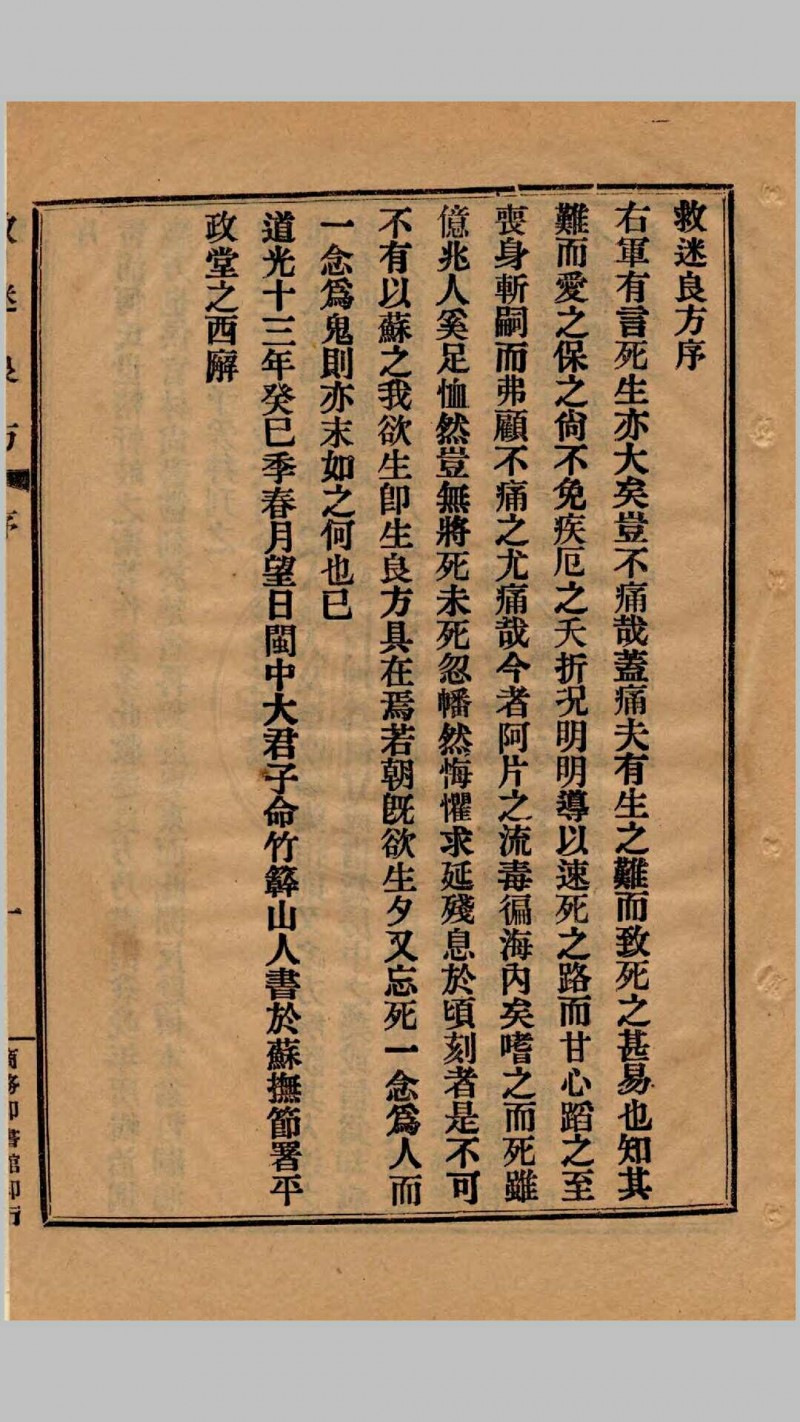 救迷良方序
右軍有言死生亦大矣豈不痛哉蓋痛夫有生之難而致死之甚易也知其
難而愛之保之尙不免疾厄之夭折况明明導以速死之路而甘心蹈之至
喪身斬嗣而弗顧不痛之尤痛哉今者阿片之流毒徧海內矣嗜之而死雖
億兆人奚足恤然豈無將死未死忽幡然悔懼求延殘息於頃刻者是不可
不有以蘇之我欲生卽生良方具在焉若朝旣欲生夕又忘死一念爲人而
一念爲鬼則亦末如之何也已
道光十三年癸巳季春月望日閩中大君子命竹簳山人書於蘇撫節署平
政堂之西廨
救迷良方
序
一
商務印書館印行